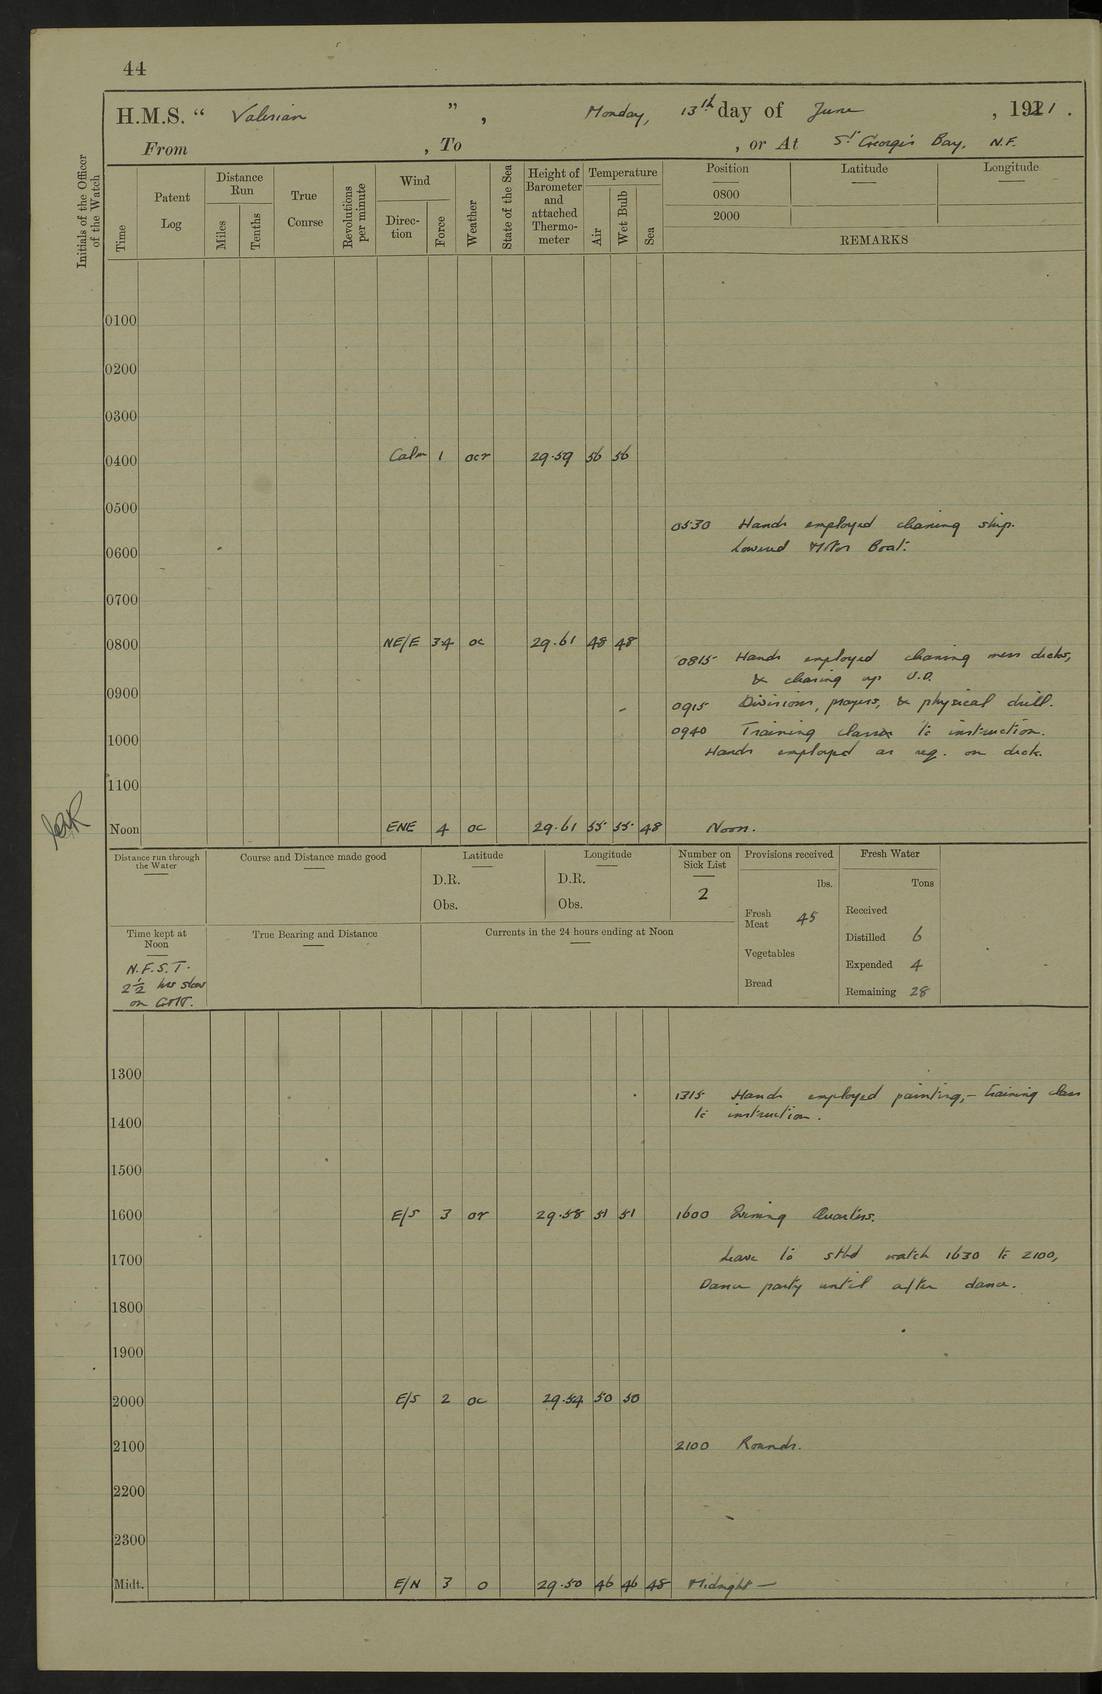 44
H.M.S. “ Valerian ”, Monday, 13th day of June, 1921.
From , To , or At St. George's Bay, N.F.
Initials of the Officer of the Watch
Time
Patent Log
Distance Run
Miles
Tenths
True Course
Revolutions per minute
Wind
Direc-tion
Force
Weather
State of the Sea
Height of Barometer and attached Thermo-meter
Temperature
Air
Wet Bulb
Sea
Position
Latitude
Longitude
0800
2000
REMARKS
0100
0200
0300
0400 Calm 1 ocr 29.59 56 56
0500
0530 Hands employed cleaning ship.
Lowered Motor Boat.
0600
0700
0800 NE/E 3.4 oc 29.61 48 48
0815 Hands employed cleaning mess decks,
& clearing up U.D.
0900
0915 Divisions, prayers, & physical drill.
0940 Training classes to instruction.
Hands employed as req. on deck.
1000
1100
Noon ENE 4 oc 29.61 55 55 48 Noon.
Distance run through the Water
Course and Distance made good
Latitude
D.R.
Obs.
Longitude
D.R.
Obs.
Number on Sick List
2
Provisions received
lbs.
Fresh Meat 45
Vegetables
Bread
Fresh Water
Tons
Received
Distilled 6
Expended 4
Remaining 28
Time kept at Noon
N.F.S.T.
2½ hrs slow
on GMT.
True Bearing and Distance
Currents in the 24 hours ending at Noon
1300
1315 Hands employed painting, - training class
to instruction.
1400
1500
1600 E/S 3 or 29.58 51 51 1600 Evening Quarters.
Leave to stbd watch 1630 to 2100,
1700
Dance party until after dance.
1800
1900
2000 E/S 2 oc 29.54 50 50
2100 2100 Rounds.
2200
2300
Midt. E/N 3 o 29.50 46 46 48 Midnight —